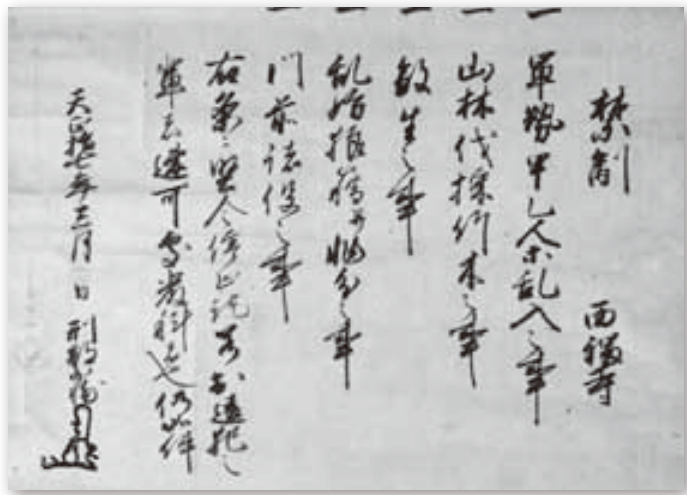 禁制 西福寺
一 軍勢甲乙人等乱入之事
一 山林伐採竹木之事
一 殺生之事
一 乱妨狼藉并物取之事
一 門前諸役之事
右条々堅令停止訖若於違犯之
輩者速可処厳科者也仍如件
天正拾七年三月 日 刑部